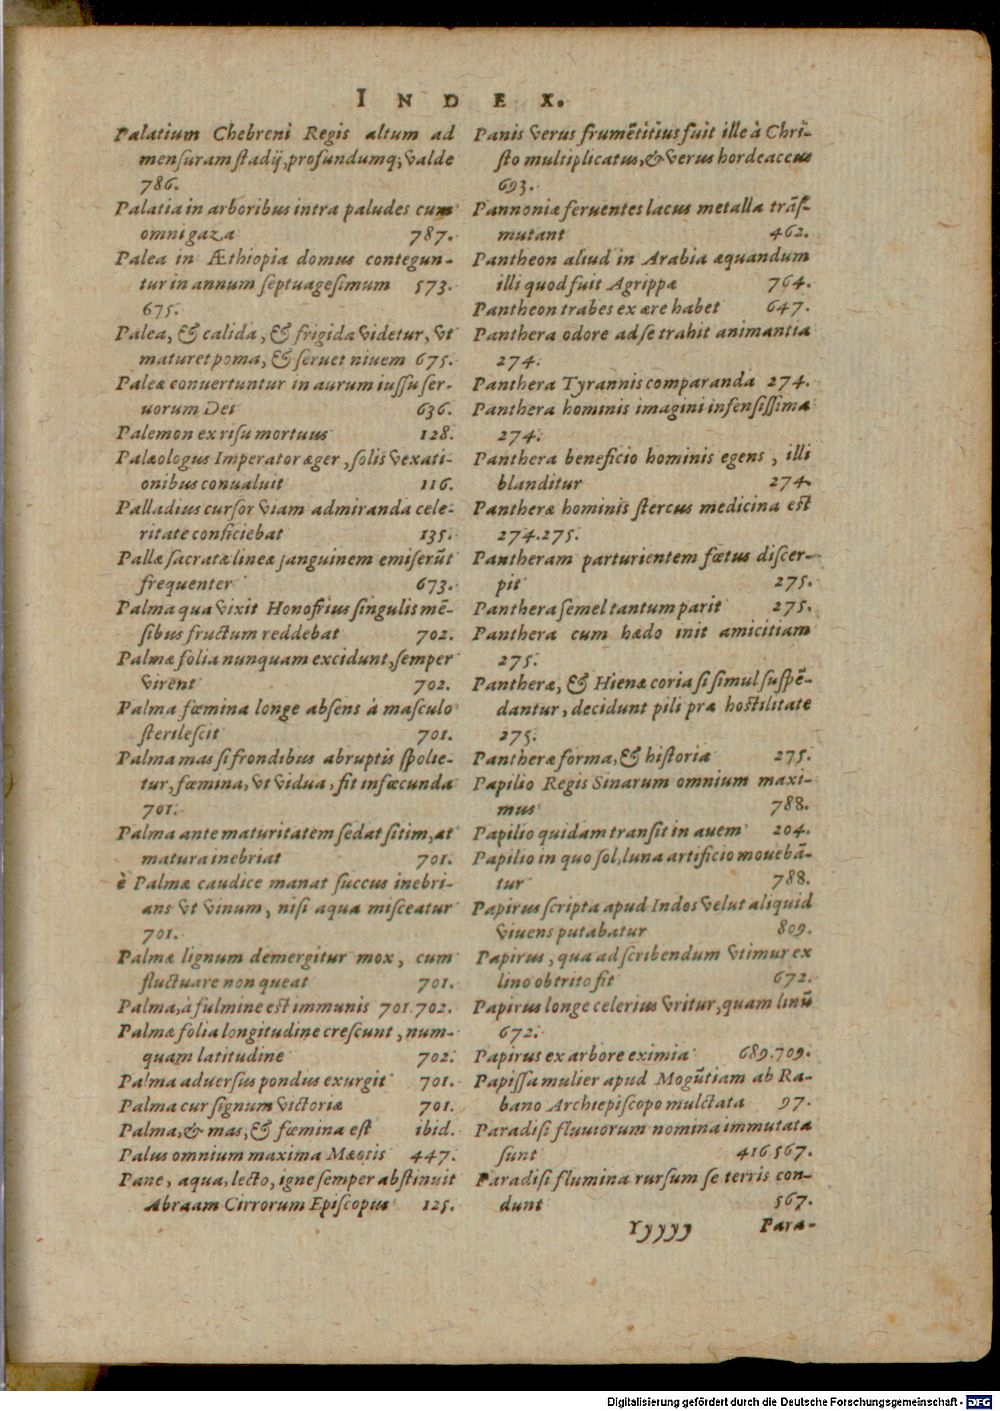 INDEX.
Palatium Chebreni Regis altum ad
mensuram stadij, profundumq; valde
786.
Palatia in arboribus intra paludes cum
omni gaza 787.
Palea in Æthiopia domus contegun-
tur in annum septuagesimum 573.
675.
Palea, & calida, & frigida videtur, vt
maturet poma, & seruet niuem 675.
Paleæ conuertuntur in aurum iussu ser-
uorum Dei 636.
Palemon ex risu mortuus 128.
Palæologus Imperator æger, solis vexati-
onibus conualuit 116.
Palladius cursor viam admiranda cele-
ritate conficiebat 135.
Pallæ sacratæ lineæ sanguinem emiserũt
frequenter 673.
Palma qua vixit Honofrius singulis mẽ-
sibus fructum reddebat 702.
Palmæ folia nunquam excidunt, semper
virent 702.
Palma fœmina longe absens à masculo
sterilescit 701.
Palma mas si frondibus abruptis spolie-
tur, fœmina, vt vidua, fit infœcunda
701.
Palma ante maturitatem sedat sitim, at
matura inebriat 701.
è Palmæ caudice manat succus inebri-
ans vt vinum, nisi aqua misceatur
701.
Palmæ lignum demergitur mox, cum
fluctuare non queat 701.
Palma, à fulmine est immunis 701.702.
Palmæ folia longitudine crescunt, num-
quam latitudine 702.
Palma aduersus pondus exurgit 701.
Palma cur signum victoriæ 701.
Palma, & mas, & fœmina est ibid.
Palus omnium maxima Mæotis 447.
Pane, aqua, lecto, igne semper abstinuit
Abraam Cirrorum Episcopus 125.
Panis verus frumẽtitius fuit ille à Chri-
sto multiplicatus, & verus hordeaceus
693.
Pannoniæ feruentes lacus metalla trãs-
mutant 462.
Pantheon aliud in Arabia æquandum
illi quod fuit Agrippæ 764.
Pantheon trabes ex ære habet 647.
Panthera odore ad se trahit animantia
274.
Panthera Tyrannis comparanda 274.
Panthera hominis imagini infensissima
274.
Panthera beneficio hominis egens, illi
blanditur 274.
Pantheræ hominis stercus medicina est
274.275.
Pantheram parturientem fœtus discer-
pit 275.
Panthera semel tantum parit 275.
Panthera cum hædo init amicitiam
275.
Pantheræ, & Hienæ coria si simul suspẽ-
dantur, decidunt pili præ hostilitate
275.
Pantheræ forma, & historia 275.
Papilio Regis Sinarum omnium maxi-
mus 788.
Papilio quidam transit in auem 204.
Papilio in quo sol, luna artificio mouebã-
tur 788.
Papirus scripta apud Indos velut aliquid
viuens putabatur 809.
Papirus, qua ad scribendum vtimur ex
lino obtrito fit 672.
Papirus longe celerius vritur, quam linũ
672.
Papirus ex arbore eximia 689.709.
Papissa mulier apud Mogũtiam ab Ra-
bano Archiepiscopo mulctata 97.
Paradisi fluuiorum nomina immutata
sunt 416 567.
Paradisi flumina rursum se terris con-
dunt 567.
Yyyyy Para-
Digitalisierung gefördert durch die Deutsche Forschungsgemeinschaft - DFG